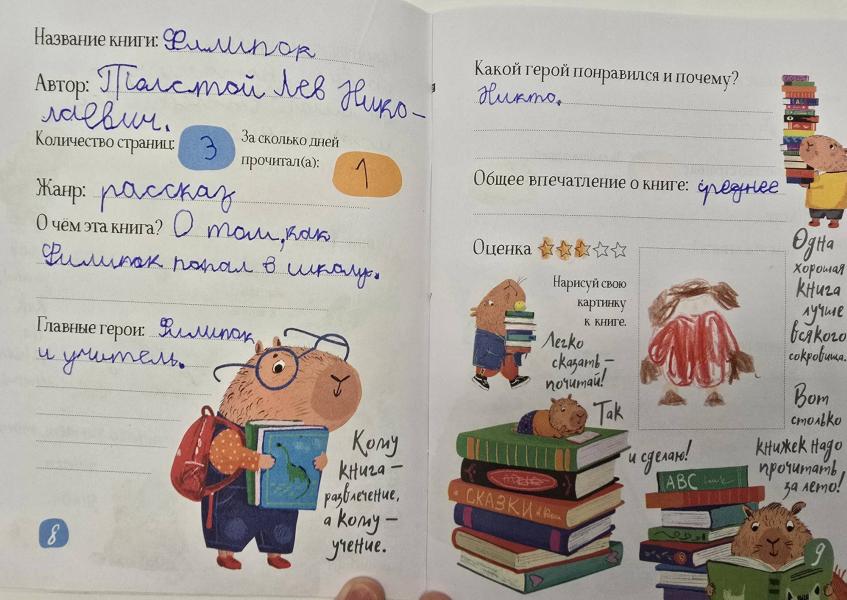 Название книги: Филипок
Автор: Толстой Лев Нико-
лаевич.
Количество страниц: 3
За сколько дней
прочитал(а): 1
Жанр: рассказ
О чём эта книга? О том, как
Филипок попал в школу.
Главные герои: Филипок
и учитель.
Кому
книга –
развлечение,
а кому –
учение.
8
Какой герой понравился и почему?
Никто.
Общее впечатление о книге: среднее
Оценка
Нарисуй свою
картинку
к книге.
Легко
сказать –
почитай!
Так
и сделаю!
СКАЗКИ
ABC
Одна
хорошая
книга
лучше
всякого
сокровища.
Вот
столько
книжек надо
прочитать
за лето!
9